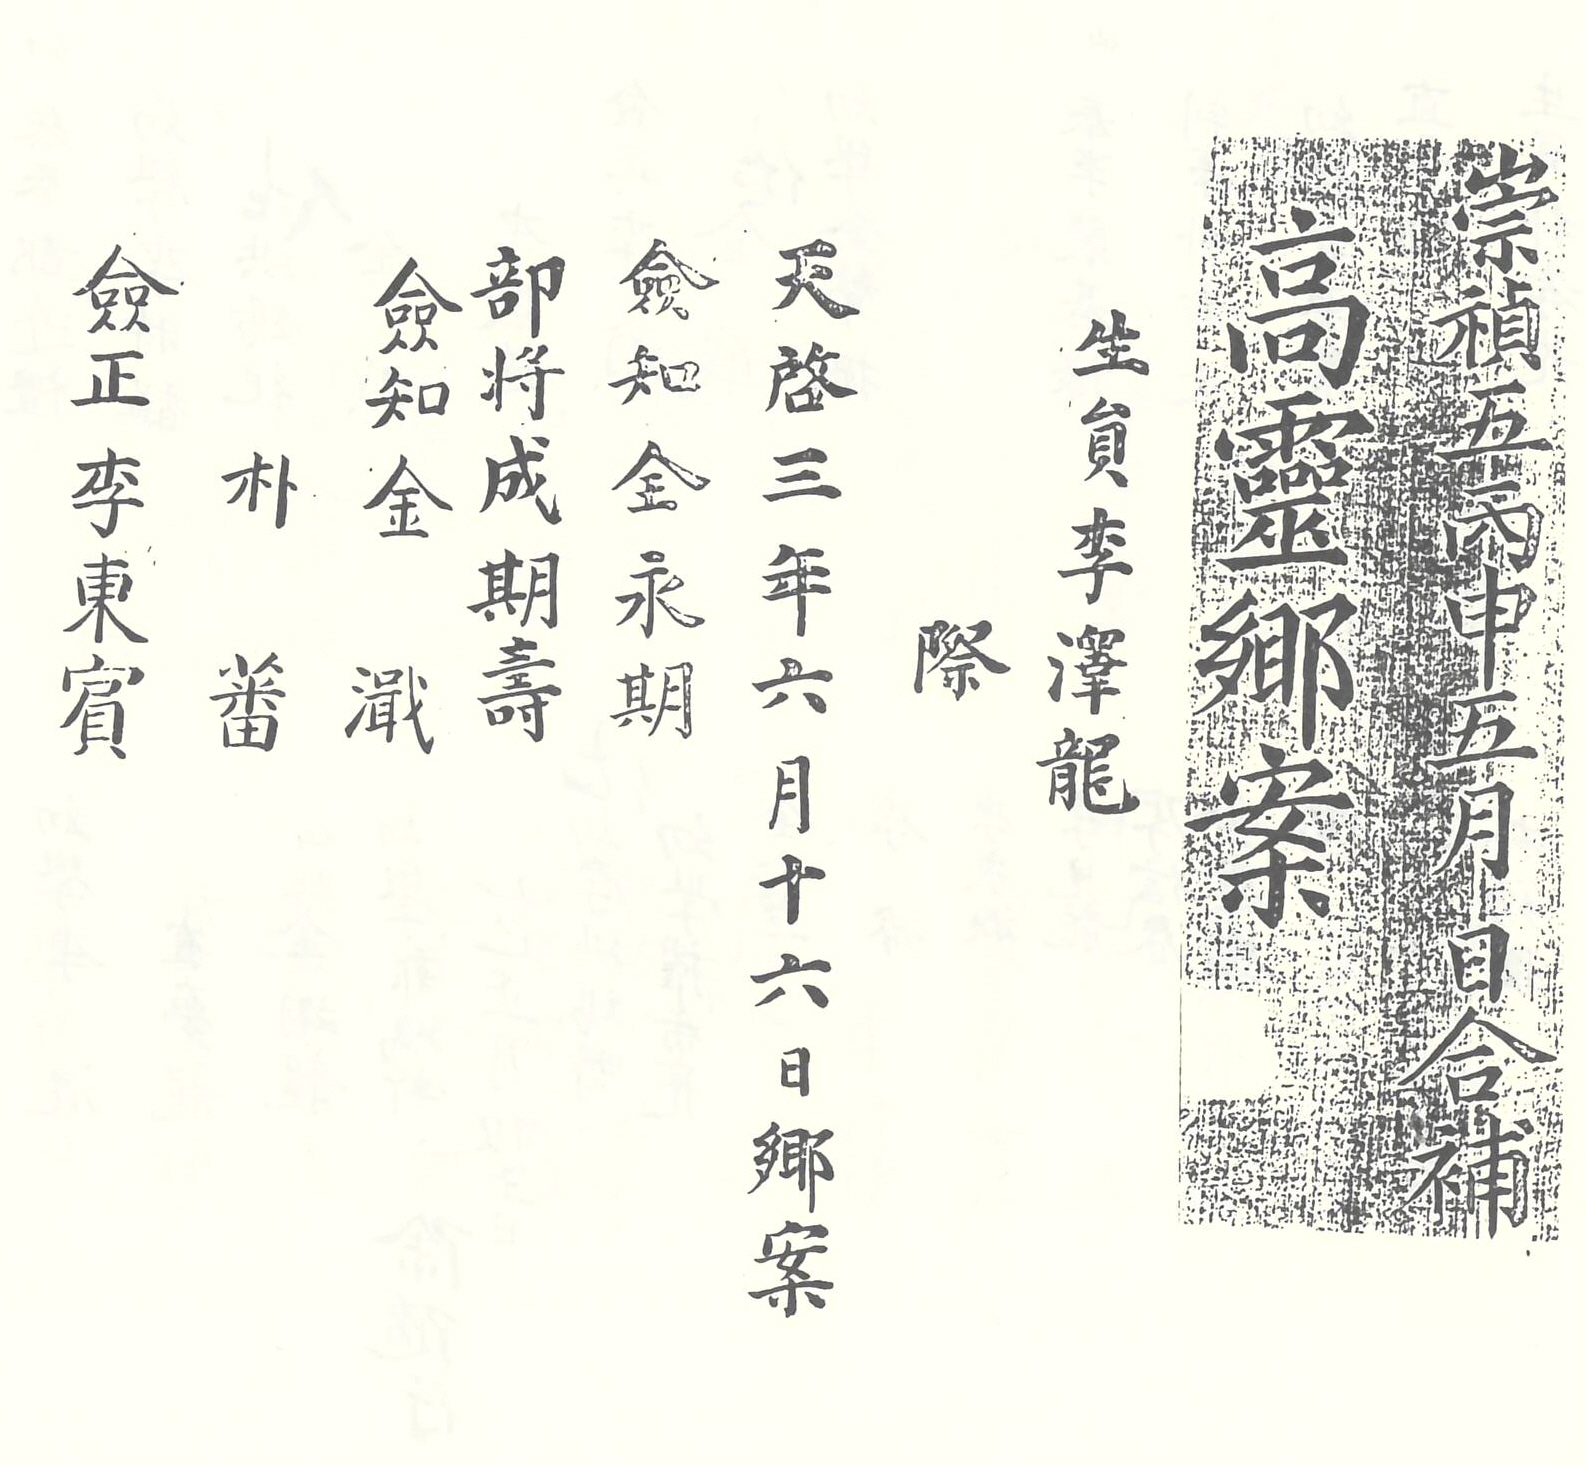 崇禎五丙申五月日合補
高靈鄉案
生員李澤龍
際
天啓三年六月十六日鄉案
僉知金永期
部將成期壽
僉知金 濈
朴 蕃
僉正李東賓